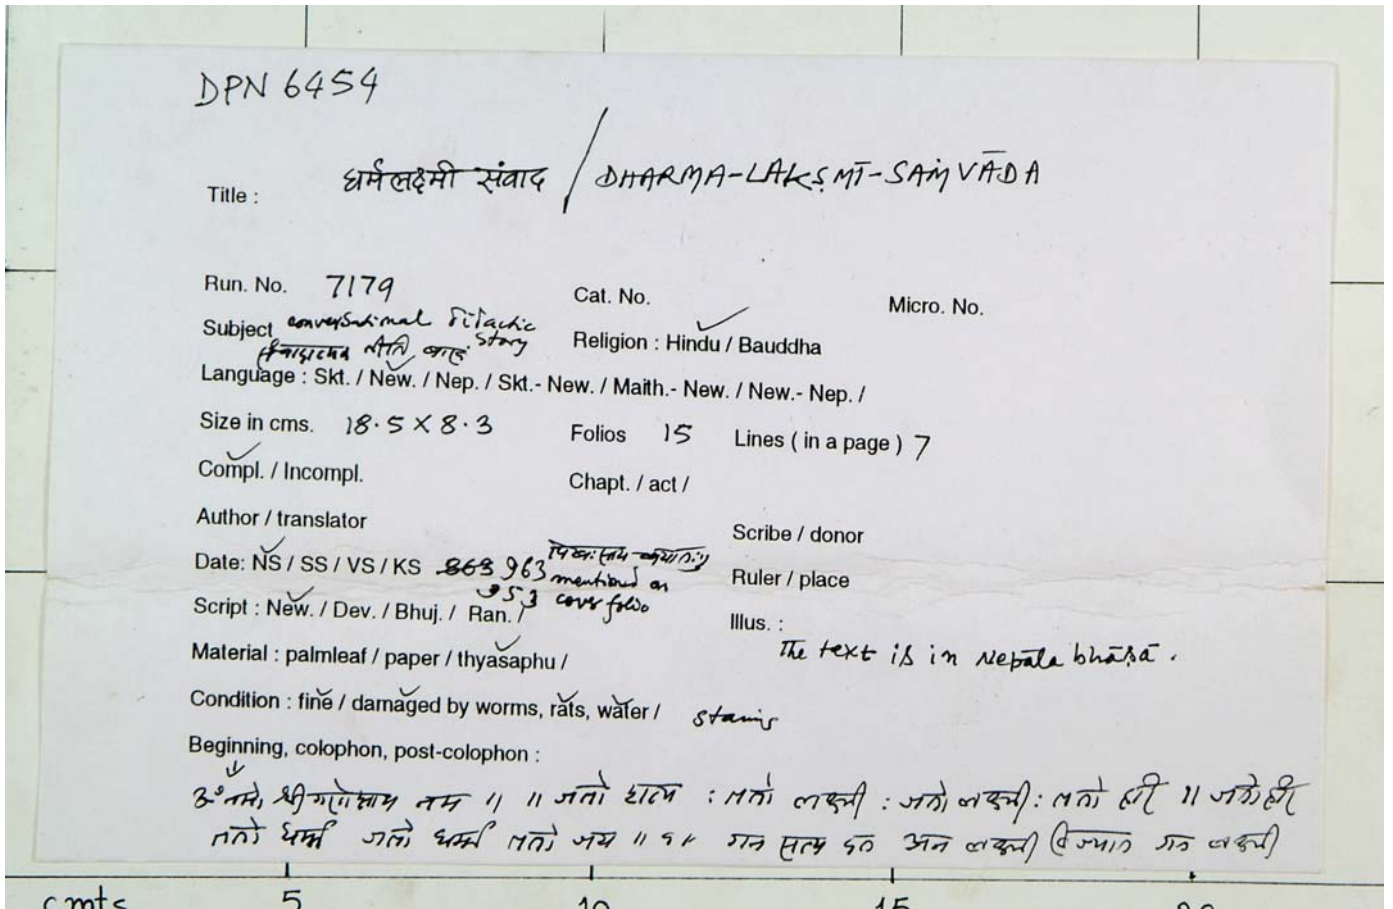 DPN 6454
Title : धर्मलक्ष्मी संवाद / DHARMA-LAKṢMĪ-SAṀVĀDA
Run. No. 7179 Cat. No. Micro. No.
Subject conversational didactic story
नीति
Religion : Hindu / Bauddha
Language : Skt. / New. / Nep. / Skt.- New. / Maith.- New. / New.- Nep. /
Size in cms. 18.5 X 8.3 Folios 15 Lines ( in a page ) 7
Compl. / Incompl. Chapt. / act /
Author / translator Scribe / donor
Date: NS / SS / VS / KS 863 963 mentioned on cover folio Ruler / place
953
Script : New. / Dev. / Bhuj. / Ran. / Illus. :
The text is in Nepāla bhāṣā.
Material : palmleaf / paper / thyasaphu /
Condition : fine / damaged by worms, rats, water / stains
Beginning, colophon, post-colophon :
ॐ नमो श्री गणेशाय नम ॥ ॥ जतो : ततो लक्ष्मी : जतो लक्ष्मी : ततो हरि ॥ जतो हरि
ततो धर्म्म जतो धर्म्म ततो जय ॥ १ ॥ गन सत्य दत अन लक्ष्मी गन लक्ष्मी
cmts 5 10 15 20